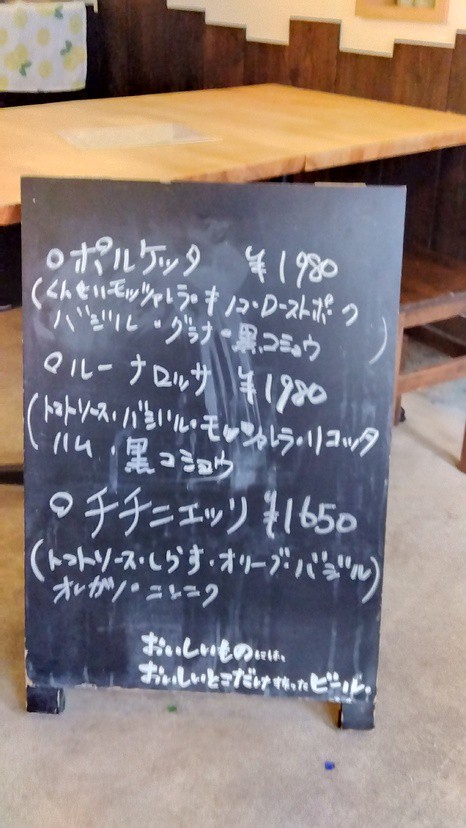 ○ ポルケッタ ¥1980
(くんせいモッツァレラ・キノコ・ローストポーク
バジル・グラナ・黒コショウ)
○ ルーナロッサ ¥1980
(トマトソース・バジル・モッツァレラ・リコッタ
ハム・黒コショウ)
○ チチニエッリ ¥1650
(トマトソース・しらす・オリーブ・バジル)
オレガノ・ニンニク
おいしいもの
おいしいとこだけ ビール。